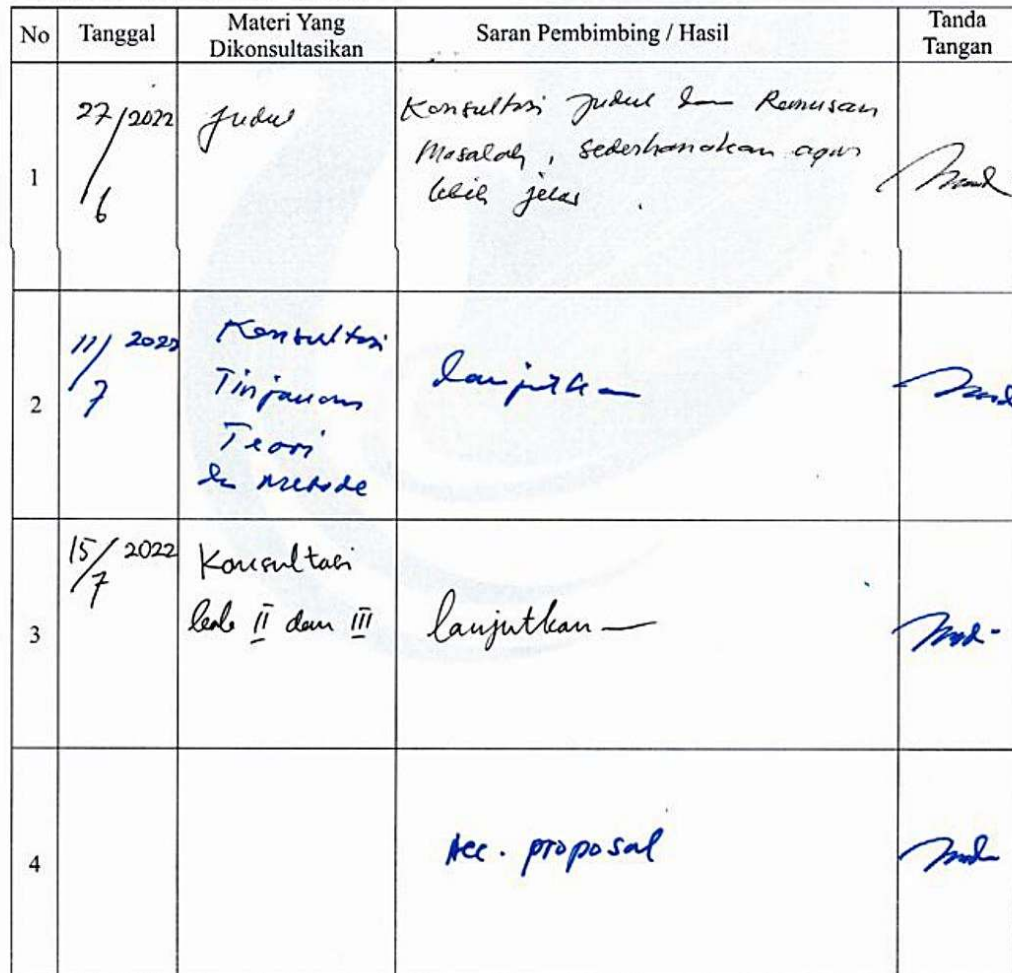 No Tanggal Materi Yang Dikonsultasikan Saran Pembimbing / Hasil Tanda Tangan
1
27/6 2022
Judul
Konsultasi Judul dan Rumusan
Masalah, sederhanakan agar
lebih jelas.
2
11/7 2022
Konsultasi
Tinjauan
Teori
dan metode
lanjutkan
3
15/7 2022
Konsultasi
bab II dan III
lanjutkan
4
Acc. proposal